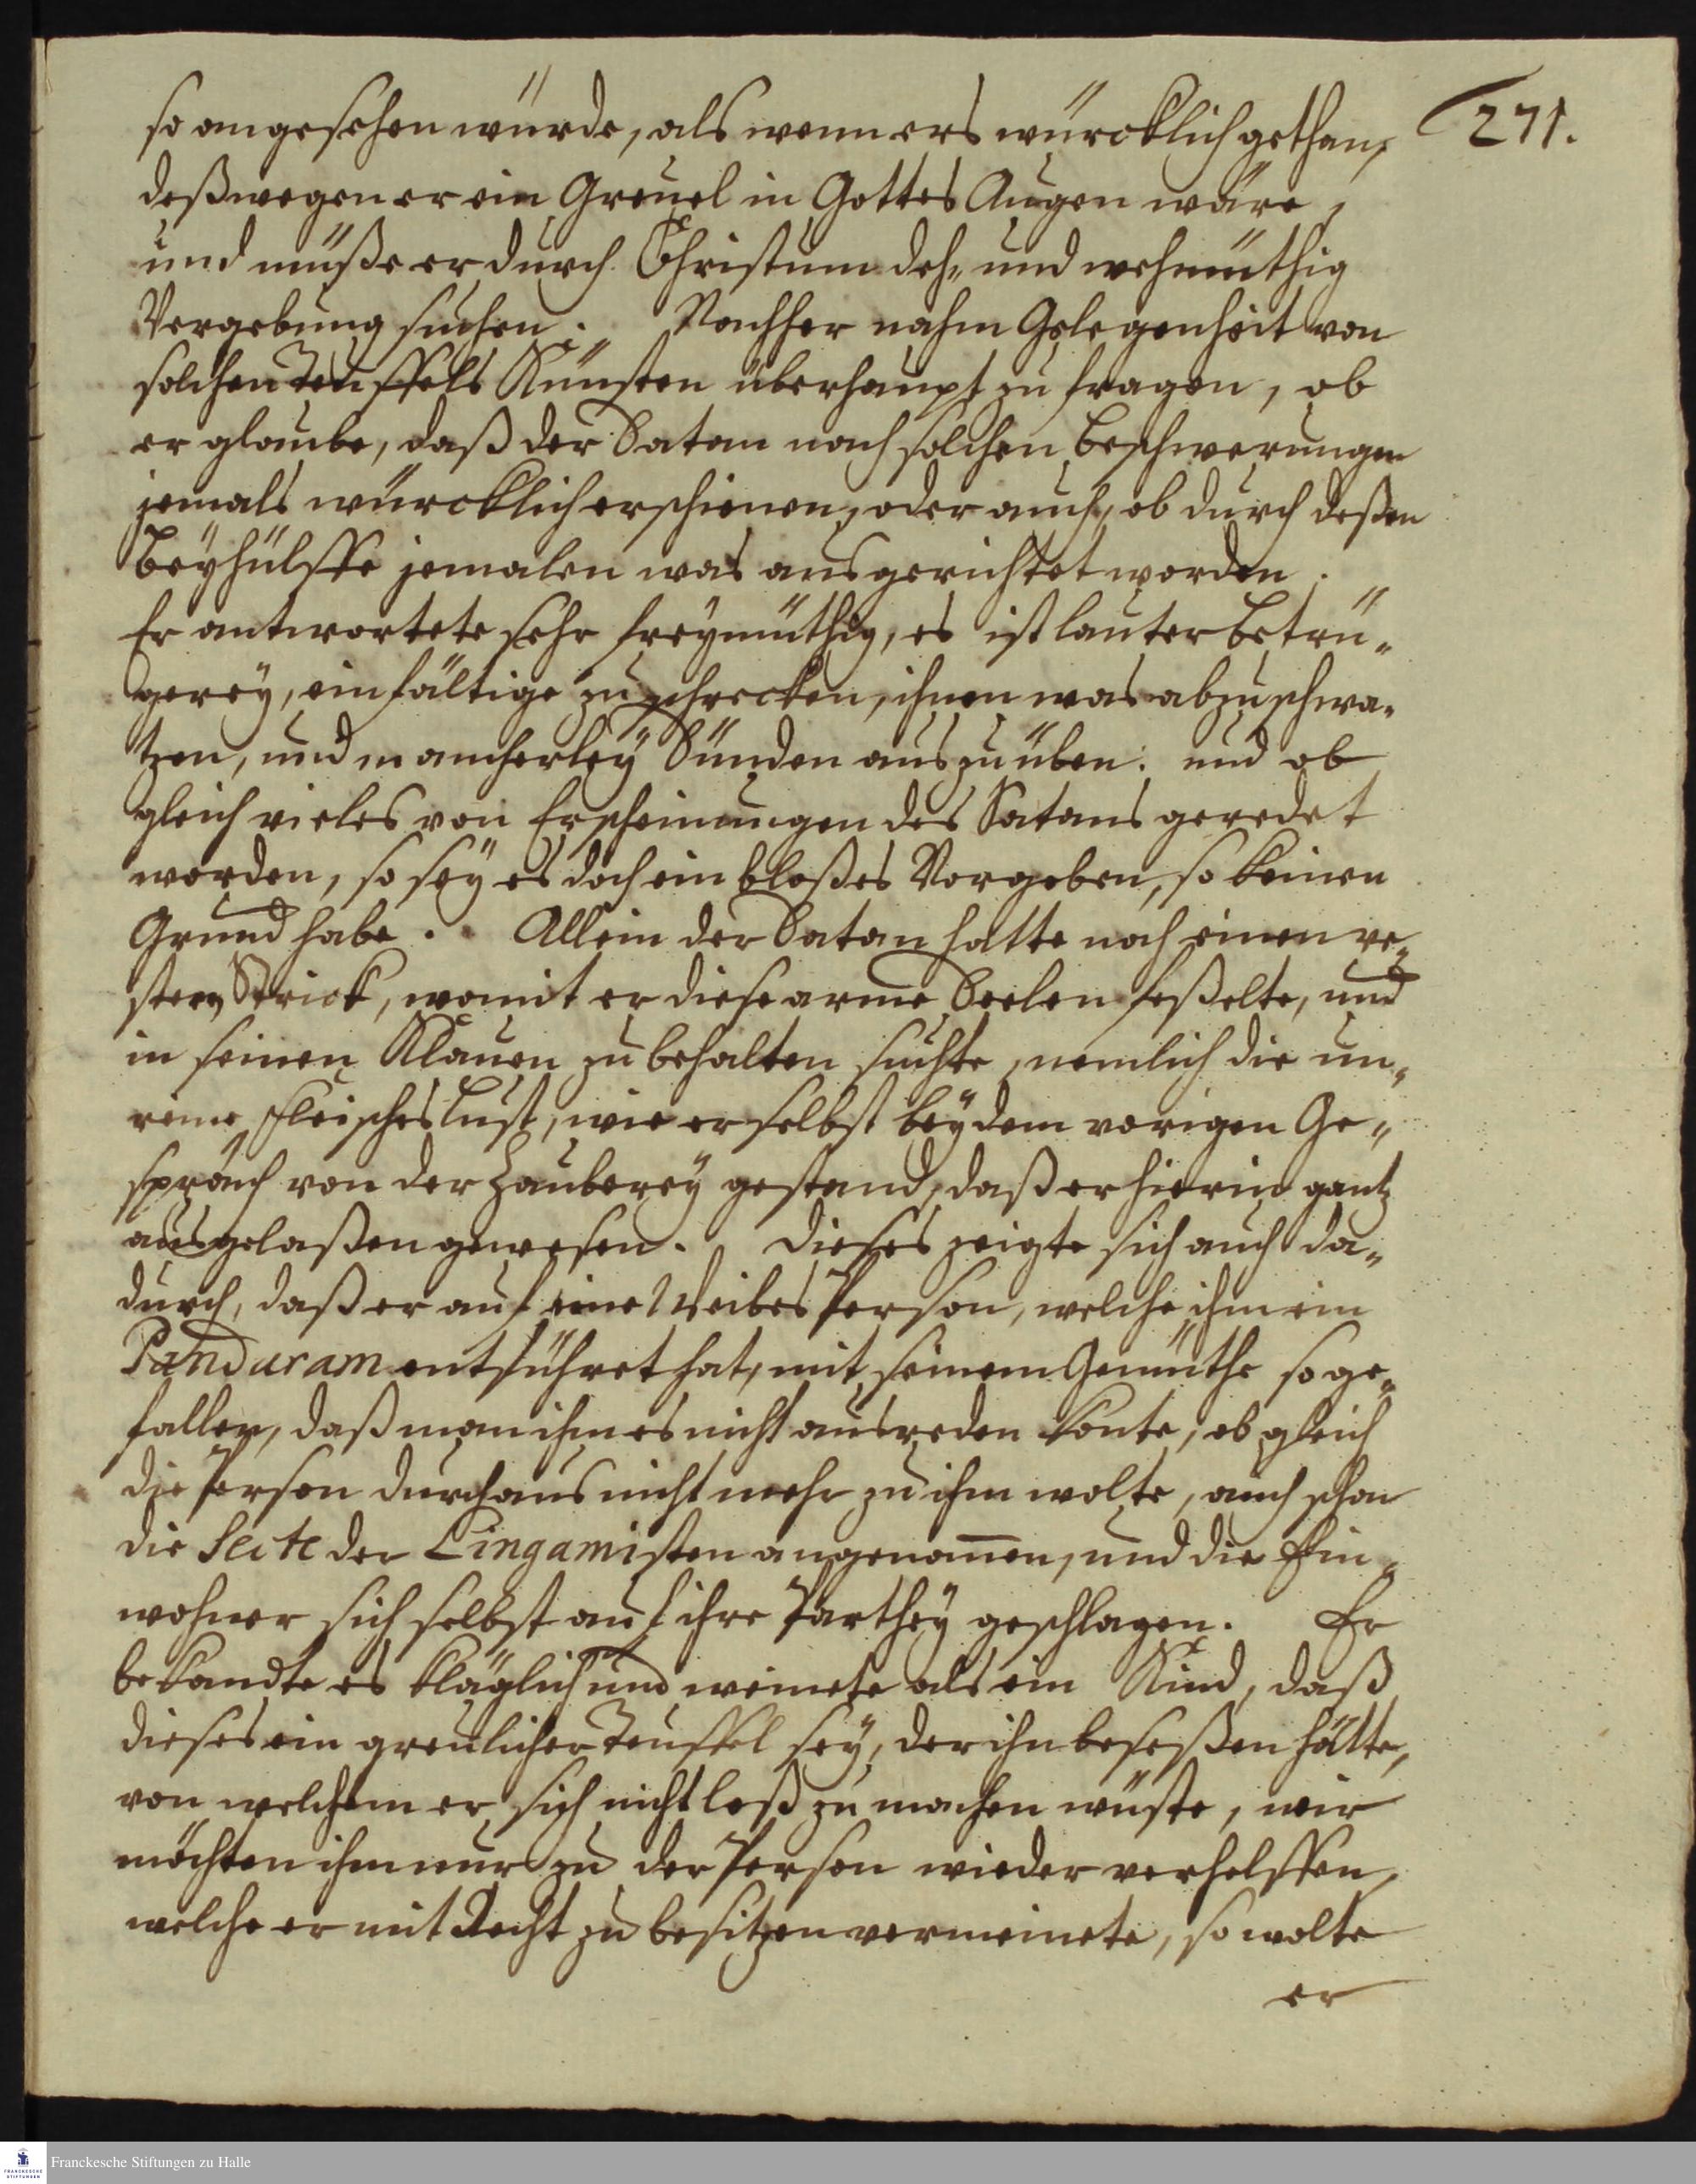 271.
so angesehen würde, als wenn ers würcklich gethan,
deßwegen er ein Greuel in Gottes Augen wäre,
und müße er durch Christum deh- und wehmüthig
Vergebung suchen. Nachher nahm Gelegenheit von
solchen Teuffels Künsten überhaupt zu fragen, ob
er glaube, daß der Satan nach solchen Beschwerungen
jemals würcklich erschienen, oder auch, ob durch deßen
Beyhülffe jemalen was ausgerichtet worden.
Er antwortete sehr freymüthig, es ist lauter Betrü-
gerey, einfältige zu schrecken, ihnen was abzuschwa-
tzen, und mancherley Sünden auszuüben: und ob
gleich vieles von Erscheinungen des Satans geredet
worden, so sey es doch ein bloßes Vorgeben, so keinen
Grund habe. Allein der Satan hatte noch einen ve-
stern Strick, womit er diese arme Seelen feßelte, und
in seinen Klauen zu behalten suchte, nemlich die un-
reine Fleischeslust, wie er selbst bey dem vorigen Ge-
spräch von der Zauberey gestand, daß er hierin gantz
ausgelaßen gewesen. Dieses zeigte sich auch da-
durch, daß er auf eine Weibes Person, welche ihm ein
Pandaram entführet hat, mit seinem Gemüthe so ge-
fallen, daß man ihm es nicht ausreden konte, ob gleich
die Person durchaus nicht mehr zu ihm wolte, auch schon
die Secte der Lingamisten angenom̄en, und die Ein-
wohner sich selbst auf ihre Parthey geschlagen. Er
bekandte es kläglich und weinete als ein Kind, daß
dieses ein greulicher Teuffel sey, der ihn beseßen hätte,
von welchem er sich nicht loß zu machen wüste, wir
möchten ihm nur zu der Person wieder verhelffen,
welche er mit Recht zu besitzen vermeinete, so wolte
er
Franckesche Stiftungen zu Halle